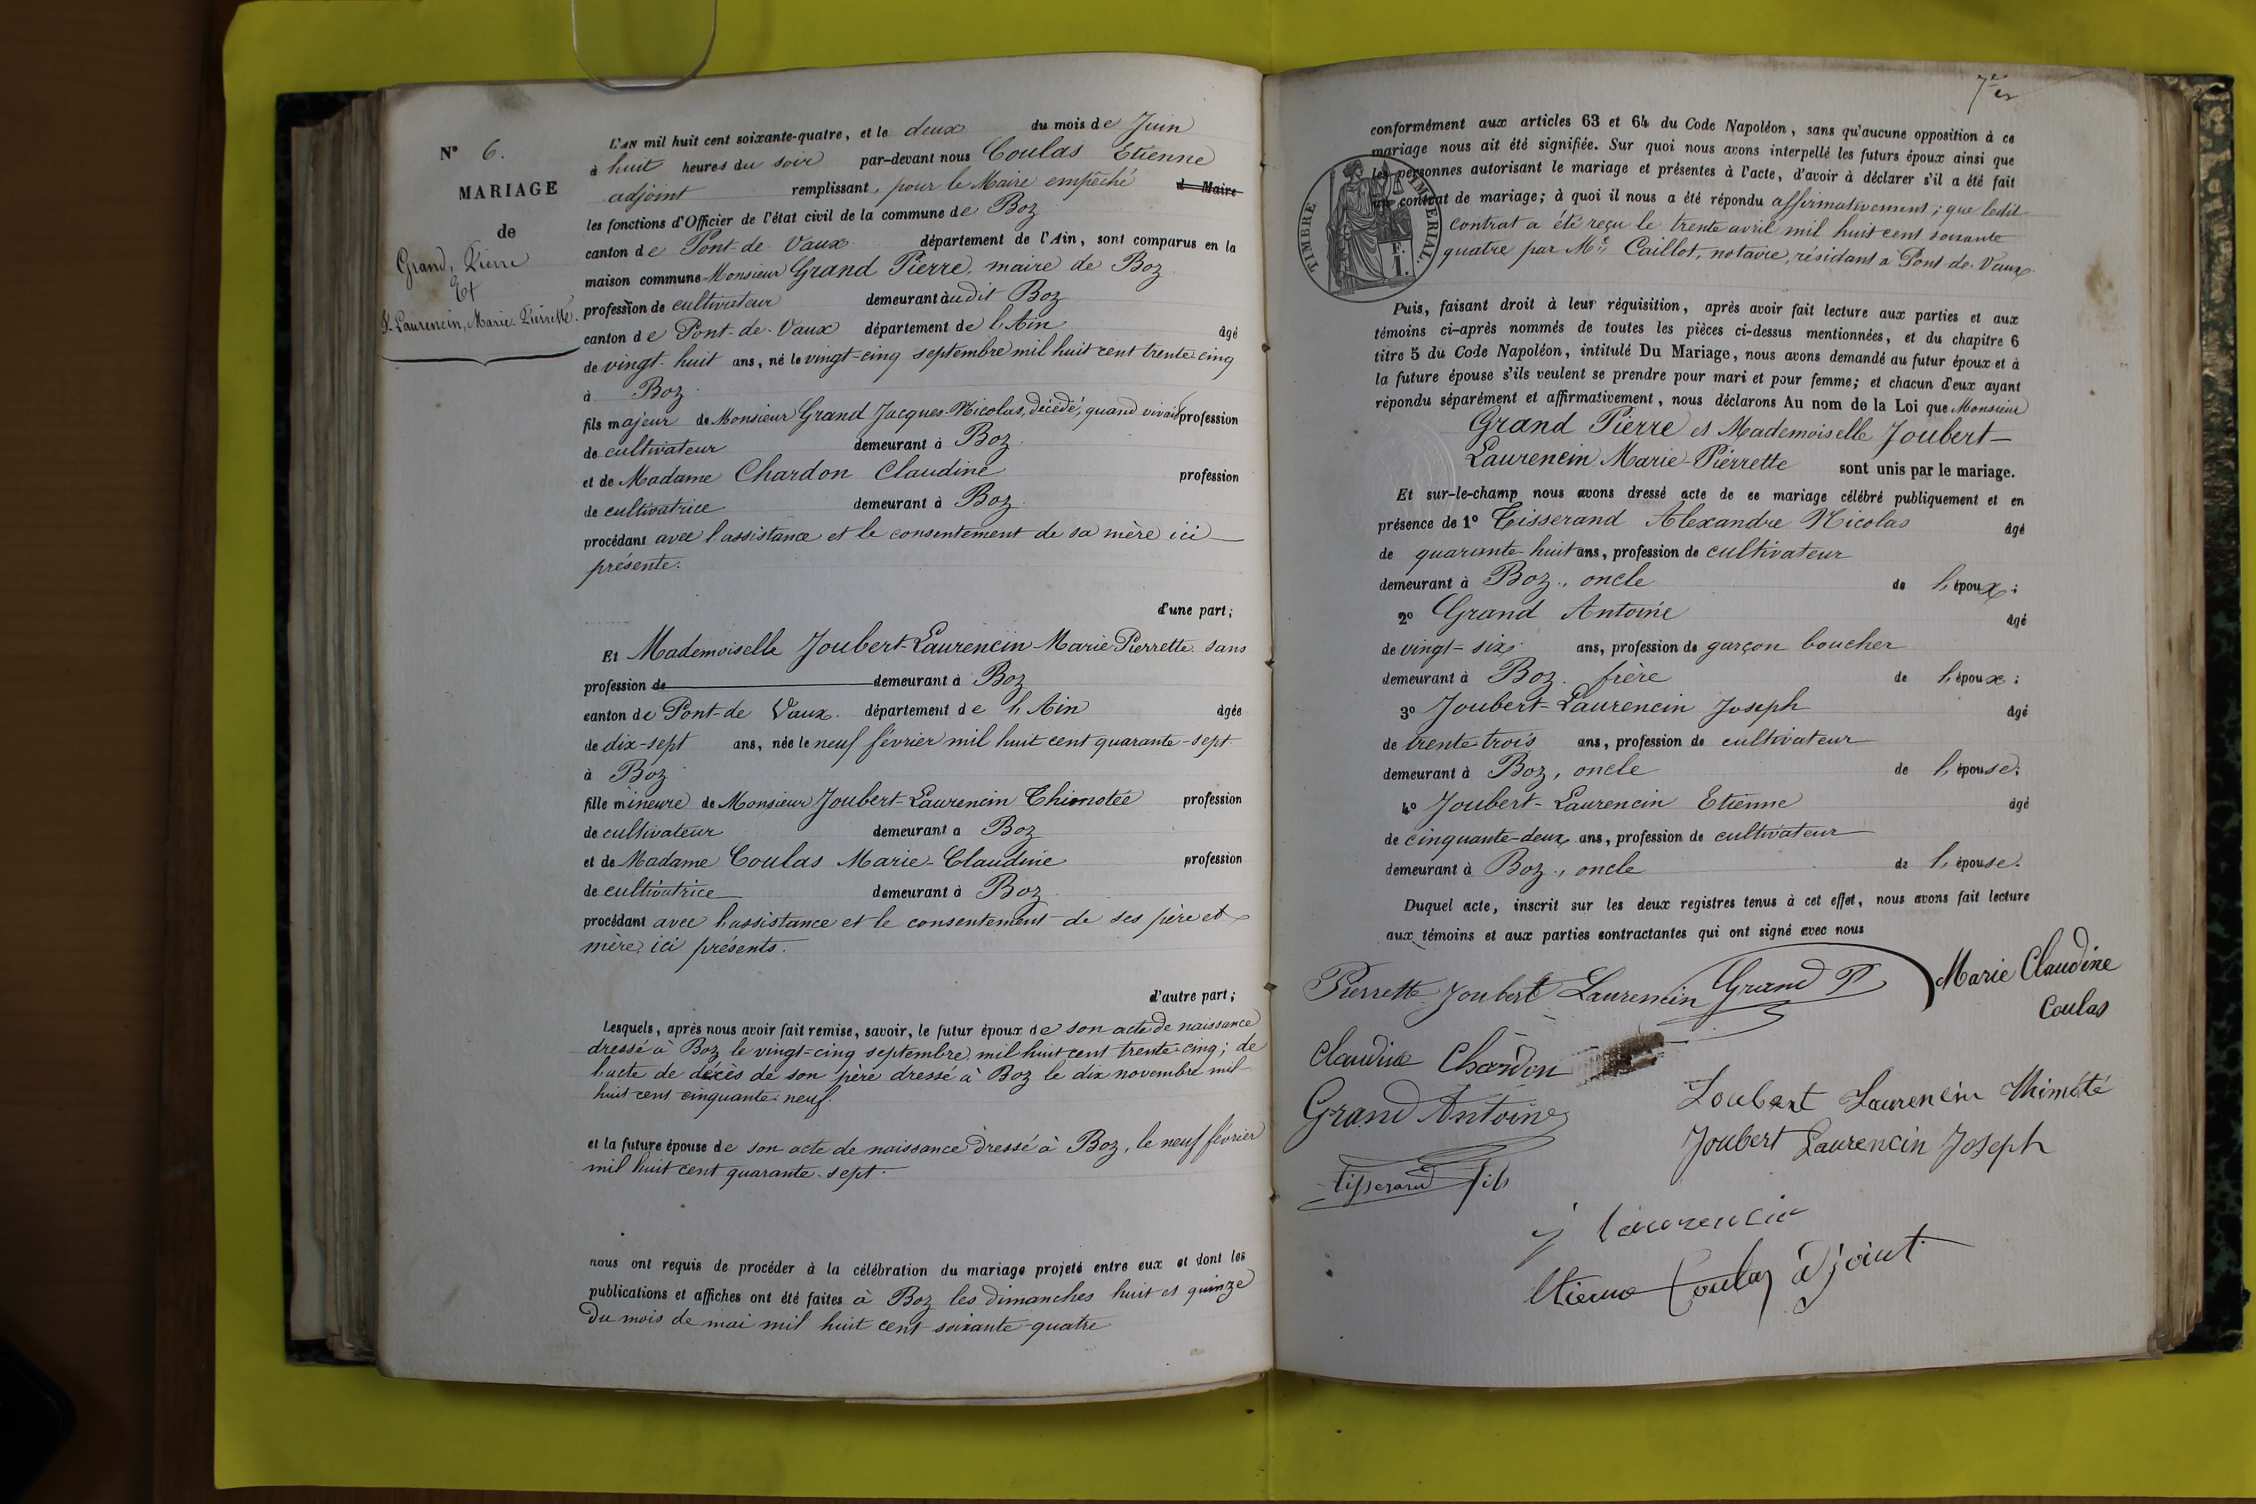 N° 6.
MARIAGE
de
Grand, Pierre
Et
J. Laurencin, Marie-Pierrette.
L'AN mil huit cent soixante-quatre, et le deux du mois de Juin
à huit heures du soir par-devant nous Coulas Etienne
adjoint remplissant, pour le Maire empêché d Maire
les fonctions d'Officier de l'état civil de la commune de Boz
canton de Pont-de-Vaux département de l'Ain, sont comparus en la
maison commune Monsieur Grand Pierre, maire de Boz
profession de cultivateur demeurant àudit Boz
canton de Pont-de-Vaux département de l'Ain âgé
de vingt-huit ans, né le vingt-cinq septembre mil huit cent trente-cinq
à Boz
fils majeur de Monsieur Grand Jacques-Nicolas, décédé, quand vivait profession
de cultivateur demeurant à Boz
et de Madame Chardon Claudine profession
de cultivatrice demeurant à Boz
procédant avec l'assistance et le consentement de sa mère ici
présente.
d'une part;
Et Mademoiselle Joubert-Laurencin Marie-Pierrette sans
profession de demeurant à Boz
canton de Pont-de Vaux département de l'Ain âgée
de dix-sept ans, née le neuf février mil huit cent quarante-sept
à Boz
fille mineure de Monsieur Joubert-Laurencin Thimotée profession
de cultivateur demeurant a Boz
et de Madame Coulas Marie-Claudine profession
de cultivatrice demeurant à Boz
procédant avec l'assistance et le consentement de ses père et
mère, ici présents.
d'autre part;
Lesquels, après nous avoir fait remise, savoir, le futur époux de son acte de naissance
dressé à Boz le vingt-cinq septembre mil huit cent trente-cinq; de
l'acte de décès de son père dressé à Boz le dix novembre mil
huit cent cinquante-neuf.
et la future épouse de son acte de naissance dressé à Boz, le neuf février
mil huit cent quarante-sept.
nous ont requis de procéder à la célébration du mariage projeté entre eux et dont les
publications et affiches ont été faites à Boz les dimanches huit et quinze
du mois de mai mil huit cent soixante-quatre
conformément aux articles 63 et 64 du Code Napoléon, sans qu'aucune opposition à ce
mariage nous ait été signifiée. Sur quoi nous avons interpellé les futurs époux ainsi que
les personnes autorisant le mariage et présentes à l'acte, d'avoir à déclarer s'il a été fait
un contrat de mariage; à quoi il nous a été répondu affirmativement; que ledit
contrat a été reçu le trente avril mil huit cent soixante
quatre par Me Caillot, notaire, résidant à Pont-de-Vaux
TIMBRE IMPERIAL.
F.
1.
Puis, faisant droit à leur réquisition, après avoir fait lecture aux parties et aux
témoins ci-après nommés de toutes les pièces ci-dessus mentionnées, et du chapitre 6
titre 5 du Code Napoléon, intitulé Du Mariage, nous avons demandé au futur époux et à
la future épouse s'ils veulent se prendre pour mari et pour femme; et chacun d'eux ayant
répondu séparément et affirmativement, nous déclarons Au nom de la Loi que Monsieur
Grand Pierre et Mademoiselle Joubert-
Laurencin Marie-Pierrette sont unis par le mariage.
Et sur-le-champ nous avons dressé acte de ce mariage célébré publiquement et en
présence de 1° Tisserand Alexandre Nicolas âgé
de quarante-huit ans, profession de cultivateur
demeurant à Boz, oncle de l'époux;
2° Grand Antoine âgé
de vingt-six ans, profession de garçon boucher
demeurant à Boz. frère de l'époux;
3° Joubert-Laurencin Joseph âgé
de trente-trois ans, profession de cultivateur
demeurant à Boz, oncle de l'épouse;
4° Joubert-Laurencin Etienne âgé
de cinquante-deux ans, profession de cultivateur
demeurant à Boz, oncle de l'épouse.
Duquel acte, inscrit sur les deux registres tenus à cet effet, nous avons fait lecture
aux témoins et aux parties contractantes qui ont signé avec nous
Pierrette Joubert Laurencin Grand P Marie Claudine
Coulas
Claudine Chardon
Grand Antoine
Joubert Laurencin Thimóté
Joubert Laurencin Joseph
Tisserand fils
j laurencin
Etienne Coulas adjoint